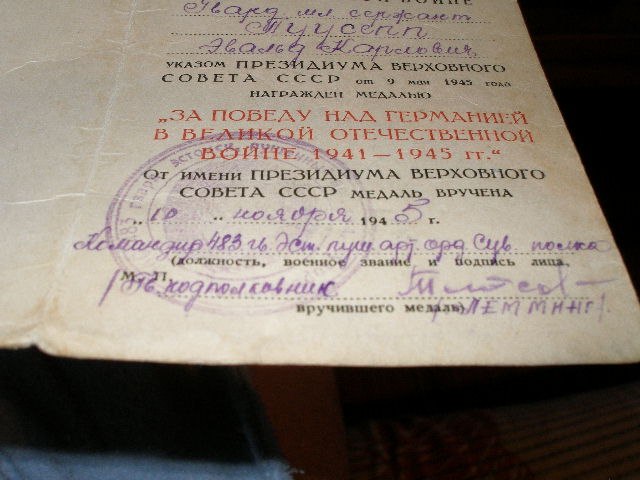 ВОЙНЕ
Гвард мл сержант
Туусепп
Эвальд Карлович
указом ПРЕЗИДИУМА ВЕРХОВНОГО
СОВЕТА СССР от 9 мая 1945 года
НАГРАЖДЕН МЕДАЛЬЮ
„ЗА ПОБЕДУ НАД ГЕРМАНИЕЙ
В ВЕЛИКОЙ ОТЕЧЕСТВЕННОЙ
ВОЙНЕ 1941—1945 гг.“
От имени ПРЕЗИДИУМА ВЕРХОВНОГО
СОВЕТА СССР МЕДАЛЬ ВРУЧЕНА
„10„ ноября 1945 г.
Командир 483 гв. Эст. пуш арт. орд Сув. полка
(должность, военное звание и подпись лица,
М. П.
Гв. подполковник
вручившего медаль)
(ЛЕММИНГ)